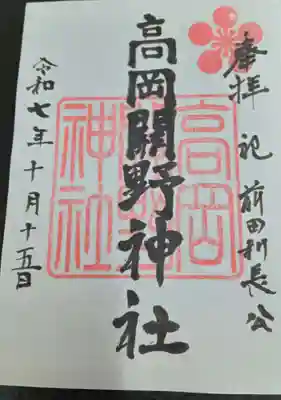 奉拝
祀 前田利長公
高岡關野神社
令和七年十月十五日
高岡關野神社